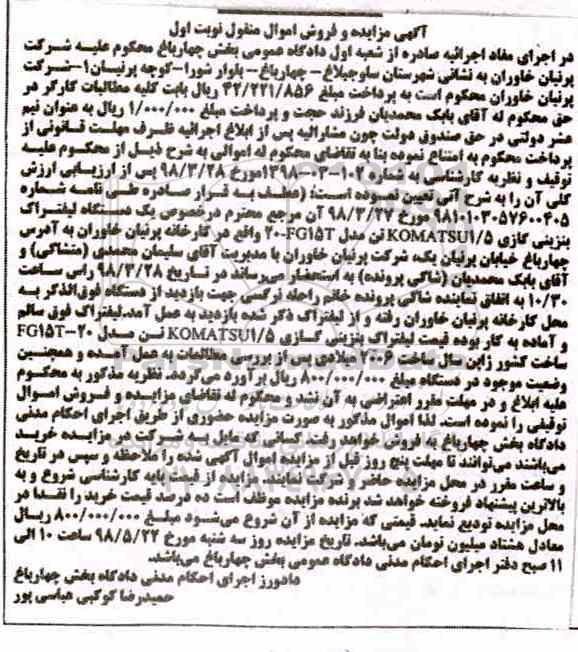 آگهی مزایده و فروش اموال منقول نوبت اول
در اجرای مفاد اجرائیه صادره از شعبه اول دادگاه عمومی بخش چهارباغ محکوم علیه شرکت
پرنیان خاوران به نشانی شهرستان ساوجبلاغ- چهارباغ- بلوار شورا-کوچه پرنیان۱-شرکت
پرنیان خاوران محکوم است به پرداخت مبلغ ۳۲/۲۲۱/۸۵۶ ریال بابت کلیه مطالبات کارگر در
حق محکوم له آقای بابک محمدیان فرزند حجت و پرداخت مبلغ ۱/۰۰۰/۰۰۰ ریال به عنوان نیم
عشر دولتی در حق صندوق دولت چون مشارالیه پس از ابلاغ اجرائیه ظرف مهلت قانونی از
پرداخت محکوم به امتناع نموده بنا به تقاضای محکوم له اموالی به شرح ذیل از محکوم علیه
توقیف و نظریه کارشناسی به شماره ۱۰۲-۰۳-۱۳۹۸مورخ ۹۸/۳/۲۸ پس از ارزیابی ارزش
کلی آن را به شرح آتی تعیین نموده است: (عطف به قرار صادره طی نامه شماره
۹۸۱۰۱۰۳۰۵۷۶۰۰۴۰۵ مورخ ۹۸/۳/۲۷ آن مرجع محترم درخصوص یک دستگاه لیفتراک
بنزینی گازی KOMATSU۱/۵ تن مدل ۲۰-FG۱۵T واقع در کارخانه پرنیان خاوران به آدرس
چهارباغ خیابان پرنیان یک، شرکت پرنیان خاوران با مدیریت آقای سلیمان محمدی (متشاکی) و
آقای بابک محمدیان (شاکی پرونده) به استحضار می‌رساند در تاریخ ۹۸/۳/۲۸ راس ساعت
۱۰/۳۰ به اتفاق نماینده شاکی پرونده خانم راحله نرگسی جهت بازدید از دستگاه فوق‌الذکر به
محل کارخانه پرنیان خاوران رفته و از لیفتراک ذکر شده بازدید به عمل آمد.لیفتراک فوق سالم
و آماده به کار بوده قیمت لیفتراک بنزینی گازی KOMATSU۱/۵ تن مدل ۲۰-FG۱۵T
ساخت کشور ژاپن سال ساخت ۲۰۰۶ میلادی پس از بررسی مطالعات به عمل آمده و همچنین
وضعیت موجود در دستگاه مبلغ ۸۰۰/۰۰۰/۰۰۰ ریال برآورد می‌گردد. نظریه مذکور به محکوم
علیه ابلاغ و در مهلت مقرر اعتراضی به آن نشد و محکوم له تقاضای مزایده و فروش اموال
توقیفی را نموده است. لذا اموال مذکور به صورت مزایده حضوری از طریق اجرای احکام مدنی
دادگاه بخش چهارباغ به فروش خواهد رفت. کسانی که مایل به شرکت در مزایده خرید
می‌باشند می‌توانند تا مهلت پنج روز قبل از مزایده اموال آگهی شده را ملاحظه و سپس در تاریخ
و ساعت مقرر در محل مزایده حاضر و شرکت نمایند. مزایده از قیمت پایه کارشناسی شروع و به
بالاترین پیشنهاد فروخته خواهد شد برنده مزایده موظف است ده درصد قیمت خرید را نقدا در
محل مزایده تودیع نماید. قیمتی که مزایده از آن شروع می‌شود مبلغ ۸۰۰/۰۰۰/۰۰۰ ریال
معادل هشتاد میلیون تومان می‌باشد. تاریخ مزایده روز سه شنبه مورخ ۹۸/۵/۲۲ ساعت ۱۰ الی
۱۱ صبح دفتر اجرای احکام مدنی دادگاه عمومی بخش چهارباغ می‌باشد.
دادورز اجرای احکام مدنی دادگاه بخش چهارباغ
حمیدرضا کوکبی عباسی پور